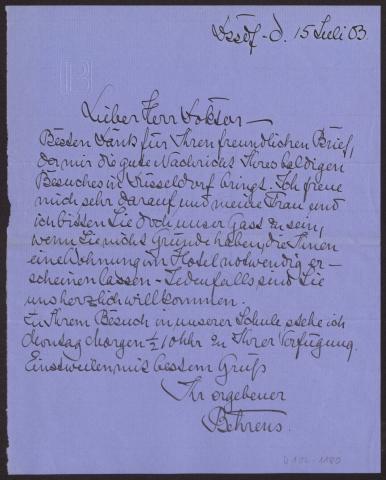 Dssdf-d. 15 Juli 03.
Lieber Herr Doktor –
Besten Dank für Ihren freundlichen Brief,
der mir die gute Nachricht Ihres baldigen
Besuches in Düsseldorf bringt. Ich freue
mich sehr darauf und meine Frau und
ich bitten Sie doch unser Gast zu sein,
wenn Sie nicht Gründe haben, die Ihnen
eine Wohnung im Hotel notwendig er-
scheinen lassen – Jedenfalls sind Sie
uns herzlich willkommen.
Zu Ihrem Besuch in unserer Schule stehe ich
Montag Morgen ½10 Uhr zu Ihrer Verfügung.
Einstweilen mit bestem Gruß
Ihr ergebener
Behrens.